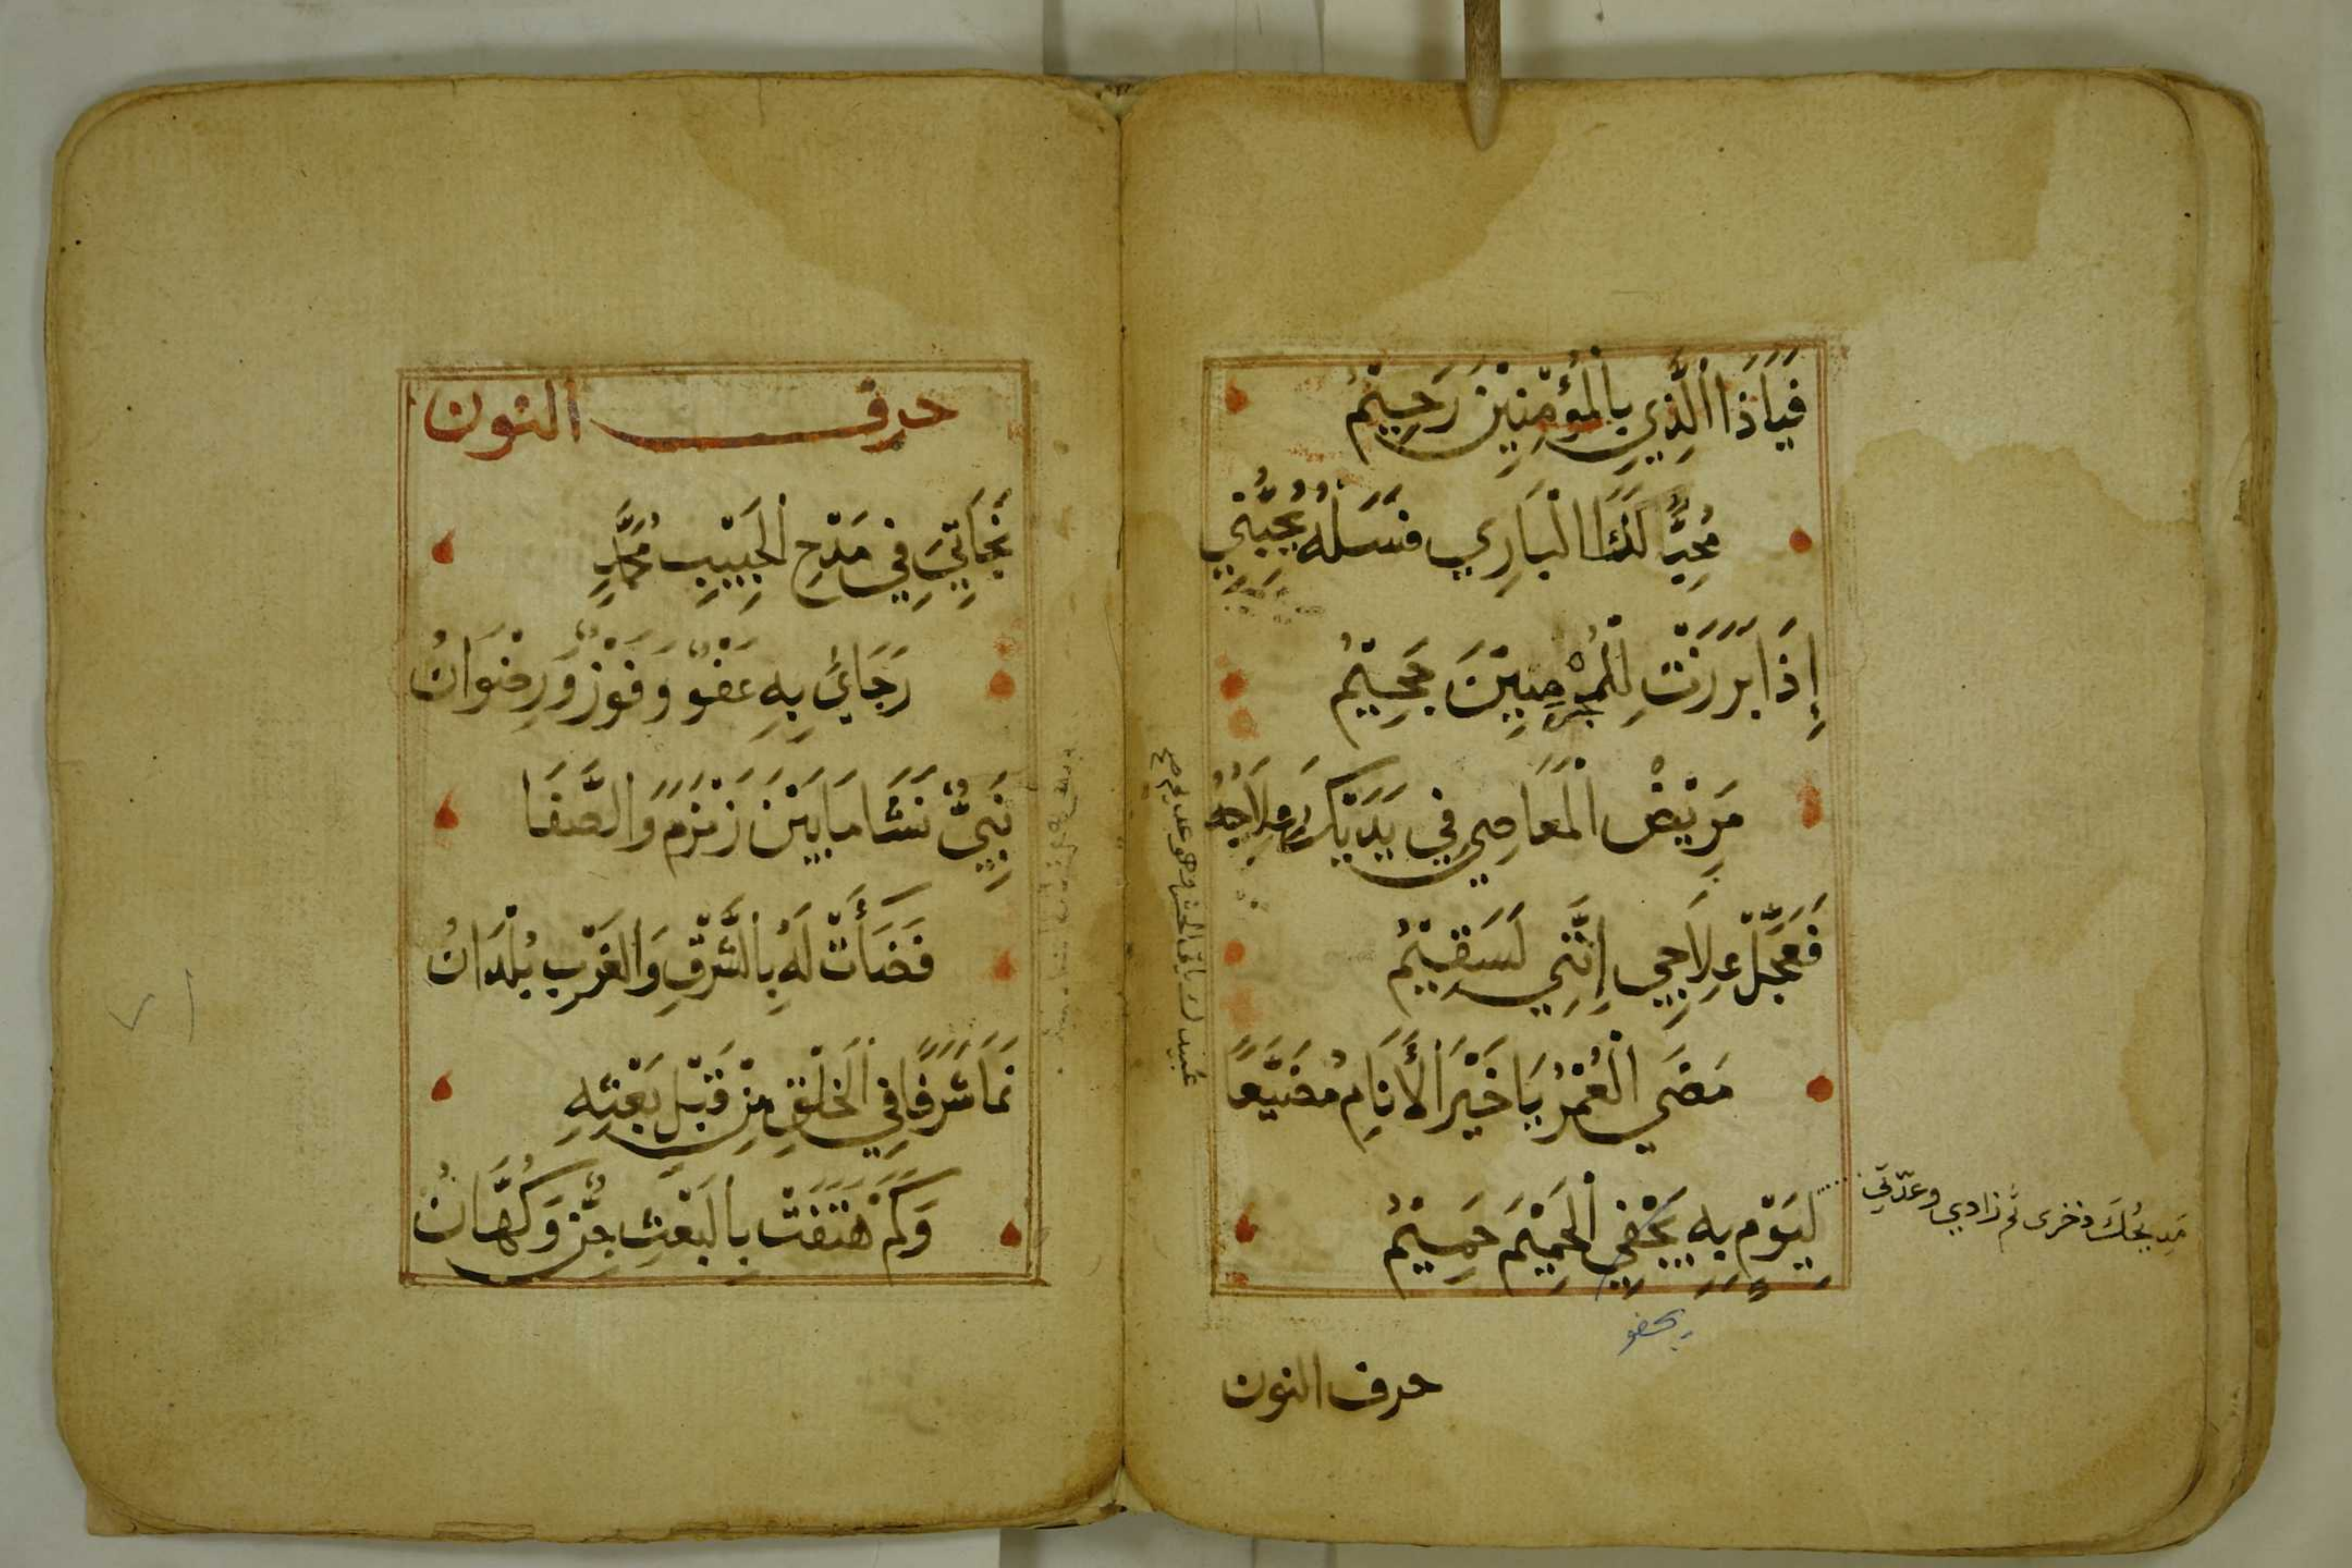 فَيَاذَا الَّذِي بِالْمُؤْمِنِيْنَ رَحِيْمُ
مُحِبٌّ لَكَ الْبَارِي فَسَلْهُ يُجِبُّنِي
إِذَا بَرَزَتْ لِلْمُجْرِمِيْنَ جَحِيْمُ
مَرِيْضُ الْمَعَاصِي فِي يَدَيْكَ عِلَاجُهُ
فَعَجِّلْ عِلَاجِي إِنَّنِي لَسَقِيْمُ
مَضَي الْعُمْرُ يَا خَيْرَ الْأَنَامِ مُضَيَّعًا
مَدِيحُكَ ذخرى ثم زادي وعدّتي
لِيَوْمٍ بِهِ يَجْفِي الْحَمِيْمَ حَمِيْمُ
يجفو
حرف النون
حرف النون
نَجَاتِيَ فِي مَدْحِ الْحَبِيْبِ مُحَمَّدٍ
رَجَائِيْ بِهِ عَفْوٌ وَفَوْزٌ وَرِضْوَانُ
نَبِيٌّ نَشَا مَا بَيْنَ زَمْزَمَ وَالصَّفَا
فَضَأَتْ لَهُ بِالشَّرْقِ وَالْغَرْبِ بُلْدَانُ
نَمَا شَرَفًا فِي الْخَلْقِ مِنْ قَبْلِ بَعْثِهِ
وَكَمْ هَتَفَتْ بِالْبَعْثِ جِنٌّ وَكُهَّانُ